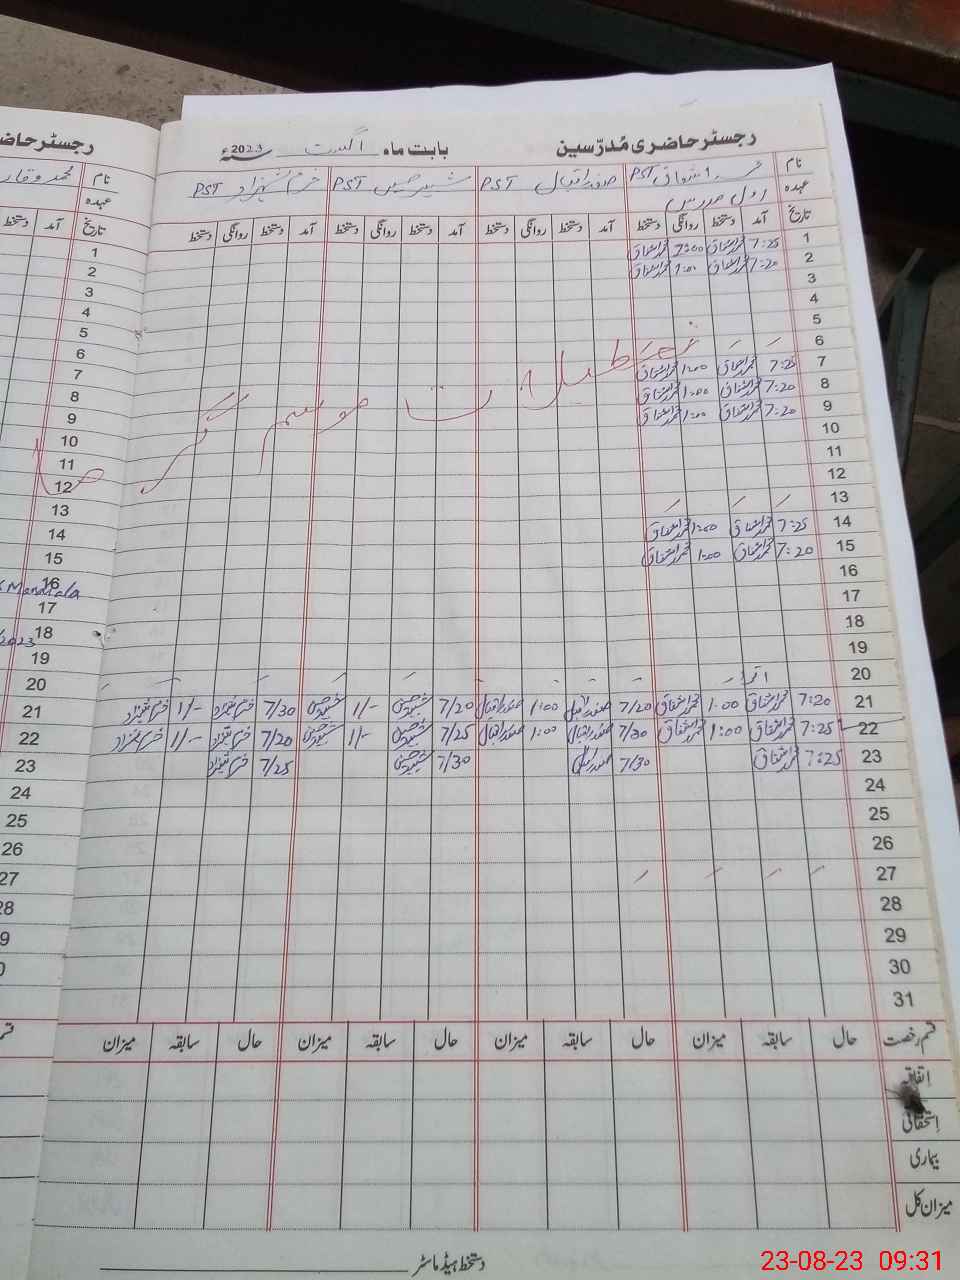 رجسٹر حاضری مُدرّسین بابت ماہ اگست سنہ 2023ء
رجسٹر حاضری
نام محمد اشفاق PST صفدر اقبال PST شبیر حسین PST خرم شہزاد PST
نام محمد وقار
عہدہ اول مدرس
عہدہ
تاریخ آمد دستخط روانگی دستخط آمد دستخط روانگی دستخط آمد دستخط روانگی دستخط آمد دستخط روانگی دستخط
تاریخ آمد دستخط
1 7:25 محمد اشفاق 7:00 محمد اشفاق 1
2 7:20 محمد اشفاق 1:00 محمد اشفاق 2
3 3
4 4
5 5
6 6
تعطیلات موسم گرما
7 7:25 محمد اشفاق 1:00 محمد اشفاق 7
8 7:20 محمد اشفاق 1:00 محمد اشفاق 8
9 7:20 محمد اشفاق 1:00 محمد اشفاق 9
10 10
11 11
12 12
13 13
14 7:25 محمد اشفاق 1:00 محمد اشفاق 14
15 7:20 محمد اشفاق 1:00 محمد اشفاق 15
16 16
17 17
18 18
/2023
19 19
20 اتوار 20
21 7:20 محمد اشفاق 1:00 محمد اشفاق 7/20 صفدر اقبال 1:00 صفدر اقبال 7/20 شبیر حسین 1/- شبیر حسین 7/30 خرم شہزاد 1/- خرم شہزاد 21
22 7:25 محمد اشفاق 1:00 محمد اشفاق 7/30 صفدر اقبال 1:00 صفدر اقبال 7/25 شبیر حسین 1/- شبیر حسین 7/20 خرم شہزاد 1/- خرم شہزاد 22
23 7:25 محمد اشفاق 7/30 صفدر اقبال 7/30 شبیر حسین 7/25 خرم شہزاد 23
24 24
25 25
26 26
27 27
28 28
29 9
30 0
31
قسم رخصت حال سابقہ میزان حال سابقہ میزان حال سابقہ میزان حال سابقہ میزان
اتفاقیہ
استحقاقی
بیماری
میزان کل
دستخط ہیڈ ماسٹر
23-08-23 09:31